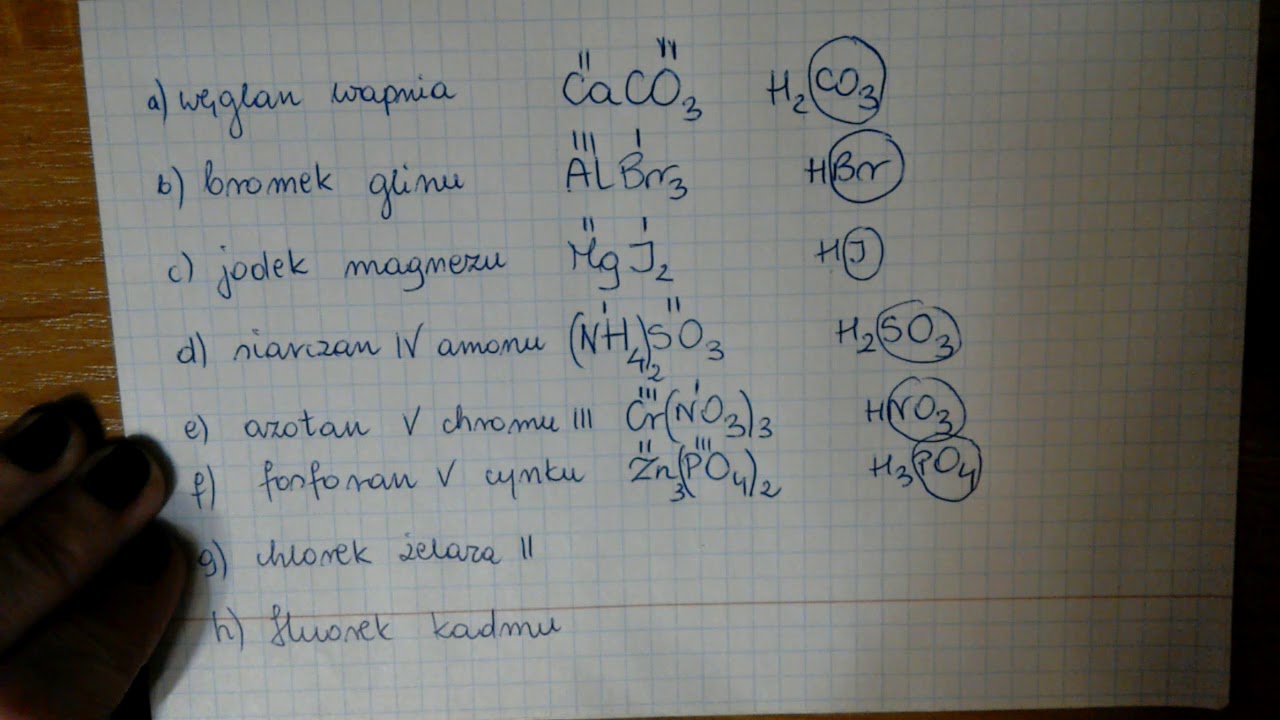 a) węglan wapnia CaCO₃ H₂CO₃
b) bromek glinu AlBr₃ HBr
c) jodek magnezu MgJ₂ HJ
d) siarczan IV amonu (NH₄)₂SO₃ H₂SO₃
e) azotan V chromu III Cr(NO₃)₃ HNO₃
f) fosforan V cynku Zn₃(PO₄)₂ H₃PO₄
g) chlorek żelaza II
h) fluorek kadmu